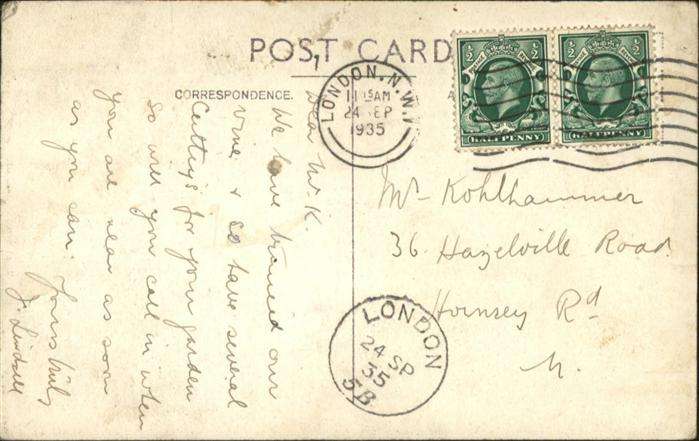 POST CARD
CORRESPONDENCE.
LONDON. N.W.1
11 15 AM
24 SEP
1935
½ ½
HALFPENNY
½ ½
HALFPENNY
Dear Mr K.
We have trimed our
vine & so have several
Cuttngs for you garden
so will you call in when
you are near as soon
as you can.
Yours truly
J.
Mr Kohlhammer
36 Hazelville Road
Hornsey Rd
N.
LONDON
24 SP
35
5B